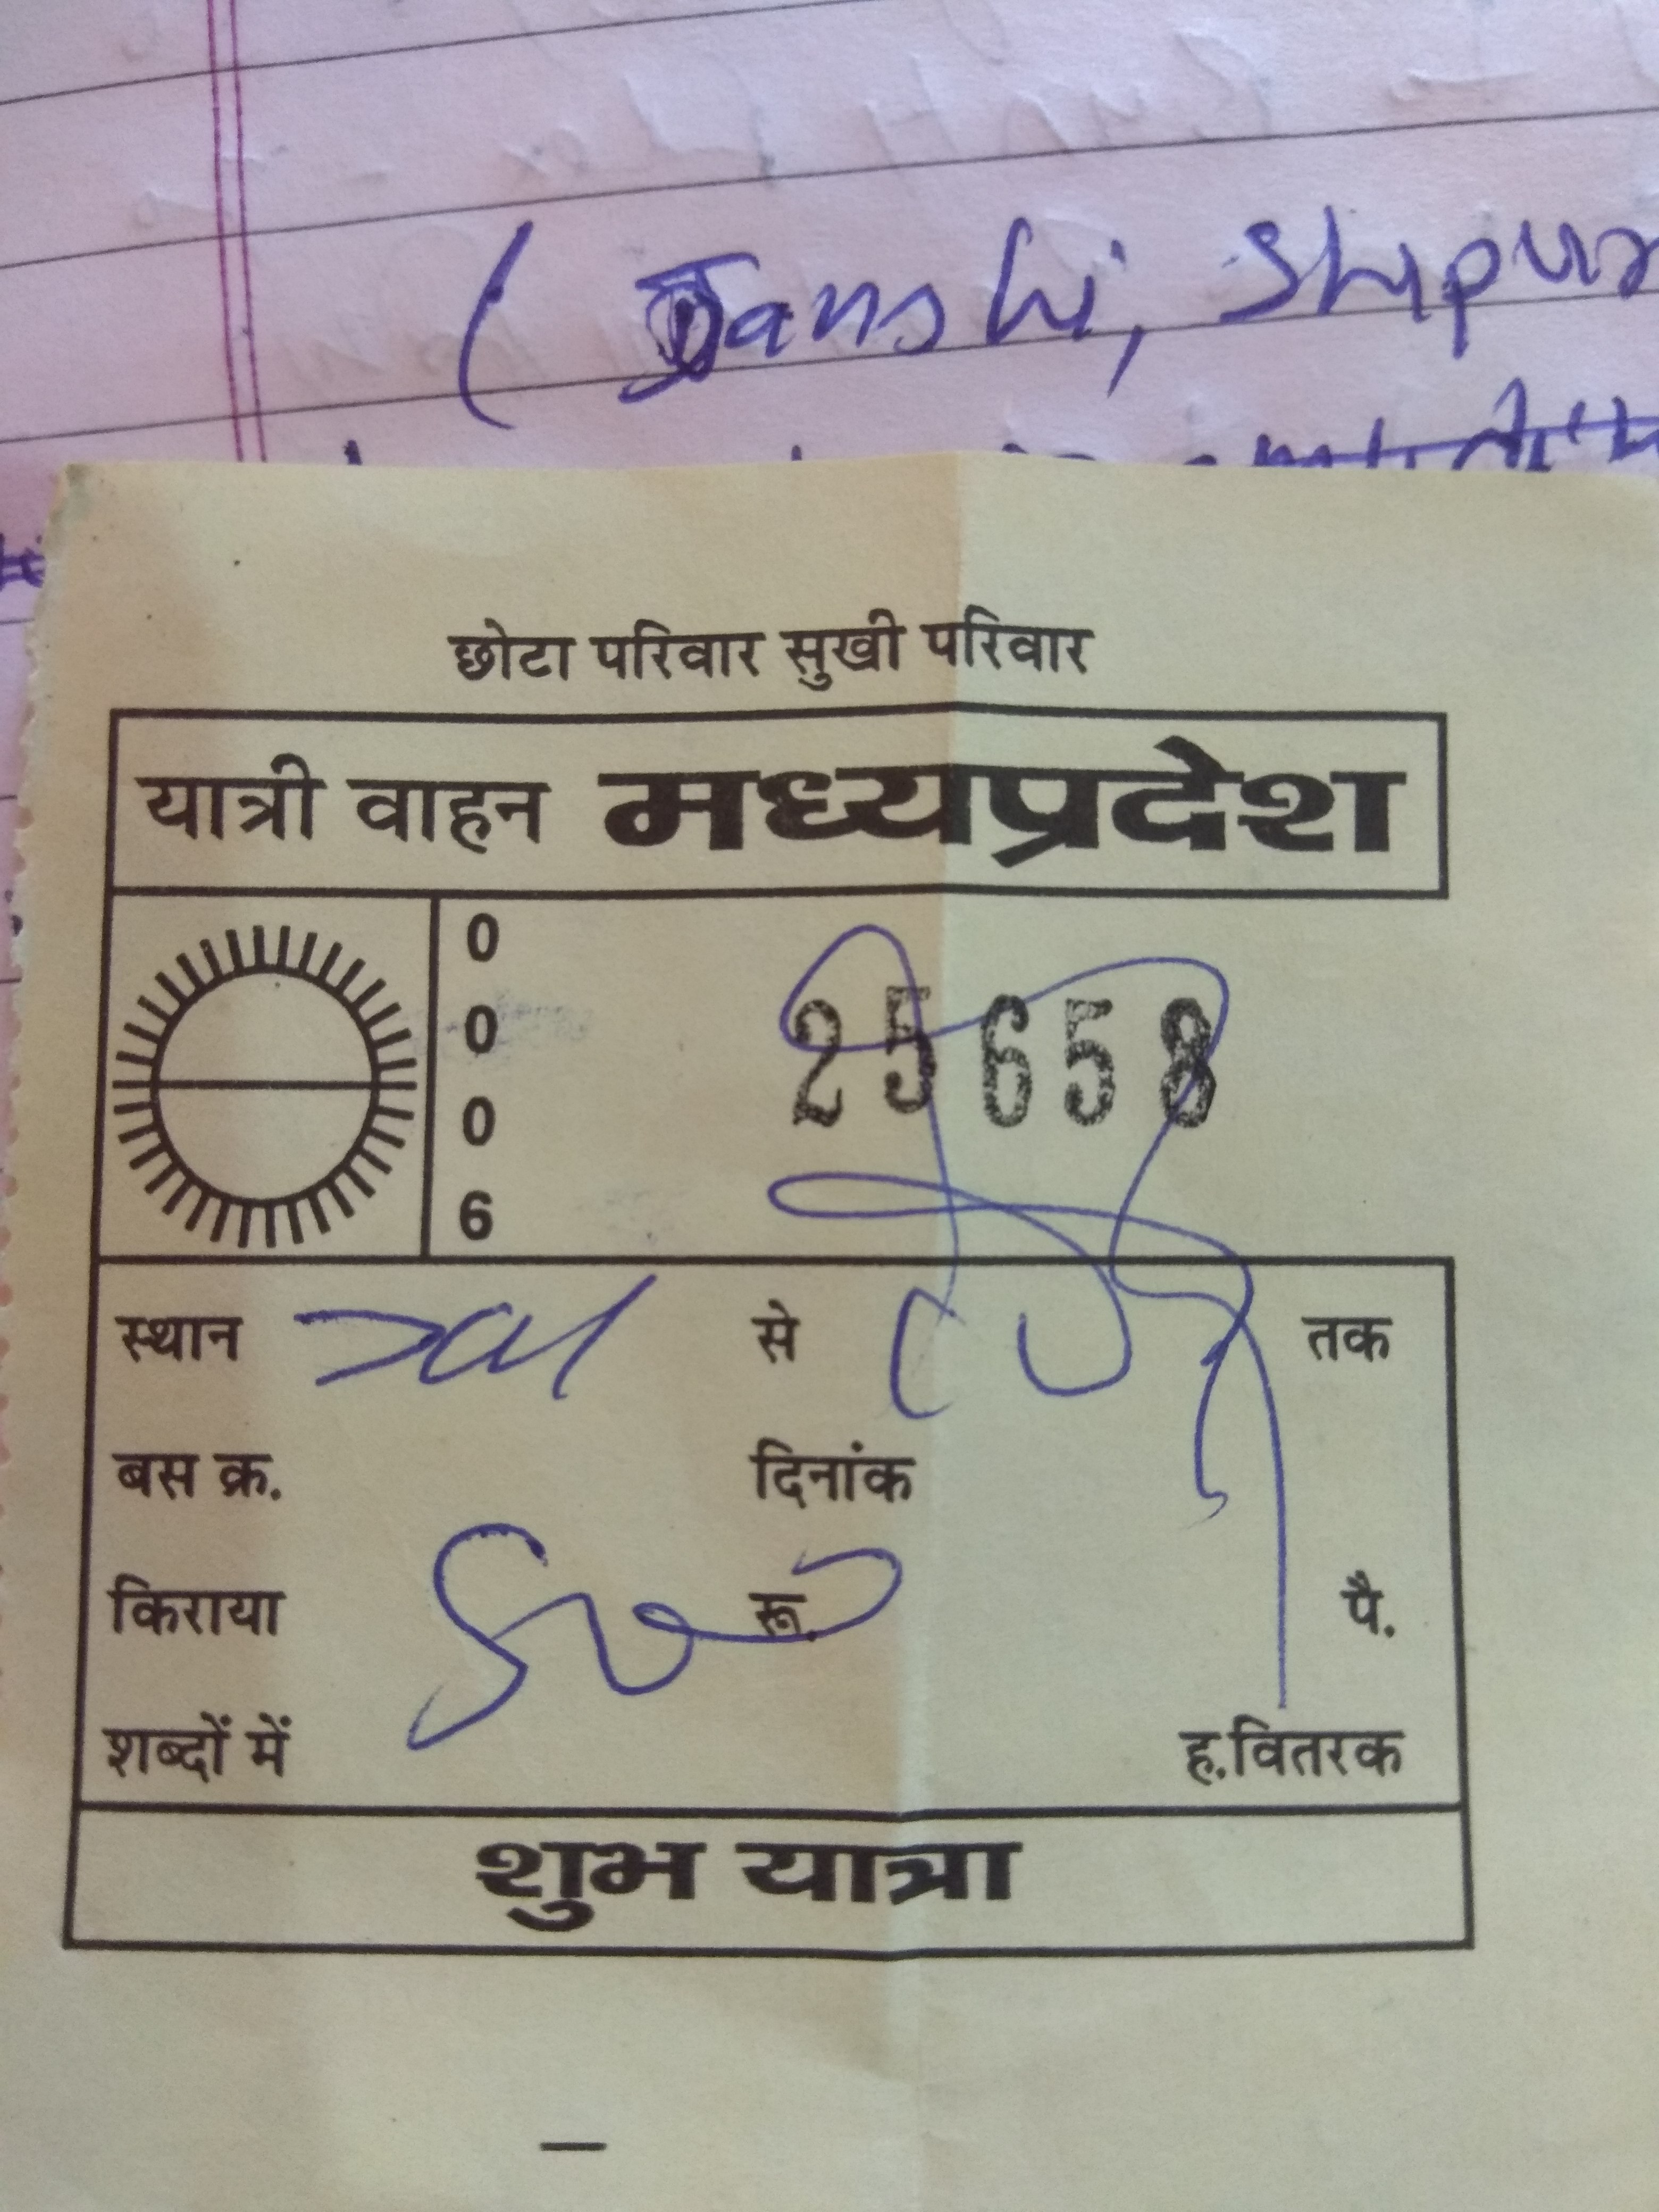 ( Janshi, Shipur
छोटा परिवार सुखी परिवार
यात्री वाहन मध्यप्रदेश
0
0
0
6
25658
स्थान से तक
बस क्र. दिनांक
किराया रू. पै.
शब्दों में ह.वितरक
शुभ यात्रा